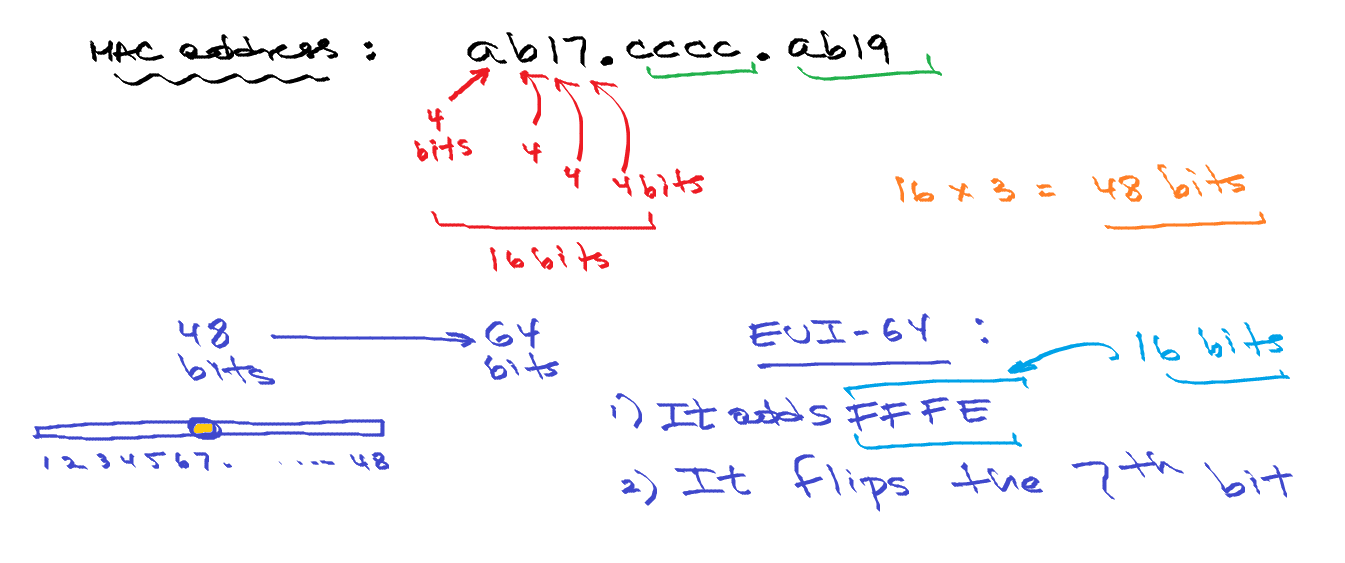 MAC address : ab17.cccc.ab19
4 bits
4
4
4 bits
16 bits
16 x 3 = 48 bits
48 bits
64 bits
1 2 3 4 5 6 7 . .... 48
EUI-64 :
16 bits
1) It adds FFFE
2) It flips the 7th bit